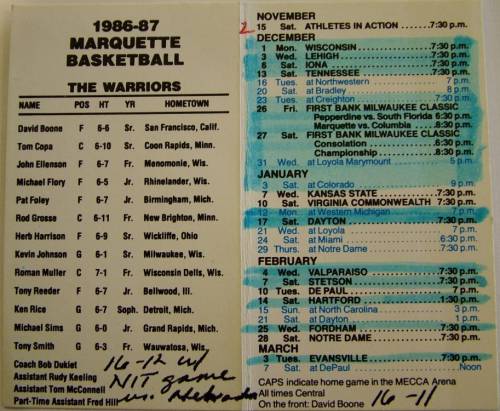 1986-87
MARQUETTE
BASKETBALL
THE WARRIORS
NAME POS HT YR HOMETOWN
David Boone F 6-6 Sr. San Francisco, Calif.
Tom Copa C 6-10 Sr. Coon Rapids, Minn.
John Ellenson F 6-7 Fr. Menomonie, Wis.
Michael Flory F 6-5 Jr. Rhinelander, Wis.
Pat Foley F 6-7 Jr. Birmingham, Mich.
Rod Grosse C 6-11 Fr. New Brighton, Minn.
Herb Harrison F 6-9 Sr. Wickliffe, Ohio
Kevin Johnson G 6-1 Sr. Milwaukee, Wis.
Roman Muller C 7-1 Fr. Wisconsin Dells, Wis.
Tony Reeder F 6-7 Jr. Bellwood, Ill.
Ken Rice G 6-7 Soph. Detroit, Mich.
Michael Sims G 6-0 Jr. Grand Rapids, Mich.
Tony Smith G 6-3 Fr. Wauwatosa, Wis.
Coach Bob Dukiet
Assistant Rudy Keeling
Assistant Tom McConnell
Part-Time Assistant Fred Hill
16-12 w/
NIT game
vs. Nebraska
NOVEMBER
2 15 Sat. ATHLETES IN ACTION .......7:30 p.m.
DECEMBER
1 Mon. WISCONSIN ...................7:30 p.m.
3 Wed. LEHIGH ........................7:30 p.m.
6 Sat. IONA ............................7:30 p.m.
13 Sat. TENNESSEE ..................7:30 p.m.
16 Tues. at Northwestern ................7 p.m.
20 Sat. at Bradley .........................8 p.m.
23 Tues. at Creighton ..................7:30 p.m.
26 Fri. FIRST BANK MILWAUKEE CLASSIC
Pepperdine vs. South Florida 6:30 p.m.
Marquette vs. Columbia ....8:30 p.m.
27 Sat. FIRST BANK MILWAUKEE CLASSIC
Consolation ...................6:30 p.m.
Championship ................8:30 p.m.
31 Wed. at Loyola Marymount ..........5 p.m.
JANUARY
3 Sat. at Colorado .......................9 p.m.
7 Wed. KANSAS STATE ..............7:30 p.m.
10 Sat. VIRGINIA COMMONWEALTH 7:30 p.m.
12 Mon. at Western Michigan ............7 p.m.
17 Sat. DAYTON .......................7:30 p.m.
21 Wed. at Loyola .........................7 p.m.
24 Sat. at Miami ........................6:30 p.m.
29 Thurs. at Notre Dame ...............7:30 p.m.
FEBRUARY
4 Wed. VALPARAISO .................7:30 p.m.
7 Sat. STETSON ......................7:30 p.m.
10 Tues. DE PAUL ........................7 p.m.
14 Sat. HARTFORD ....................1:30 p.m.
15 Sun. at North Carolina ................3 p.m.
21 Sat. at Dayton ........................1 p.m.
25 Wed. FORDHAM .....................7:30 p.m.
28 Sat. NOTRE DAME ................7:30 p.m.
MARCH
3 Tues. EVANSVILLE .................7:30 p.m.
7 Sat. at DePaul .........................Noon
CAPS indicate home game in the MECCA Arena
All times Central
On the front: David Boone 16-11